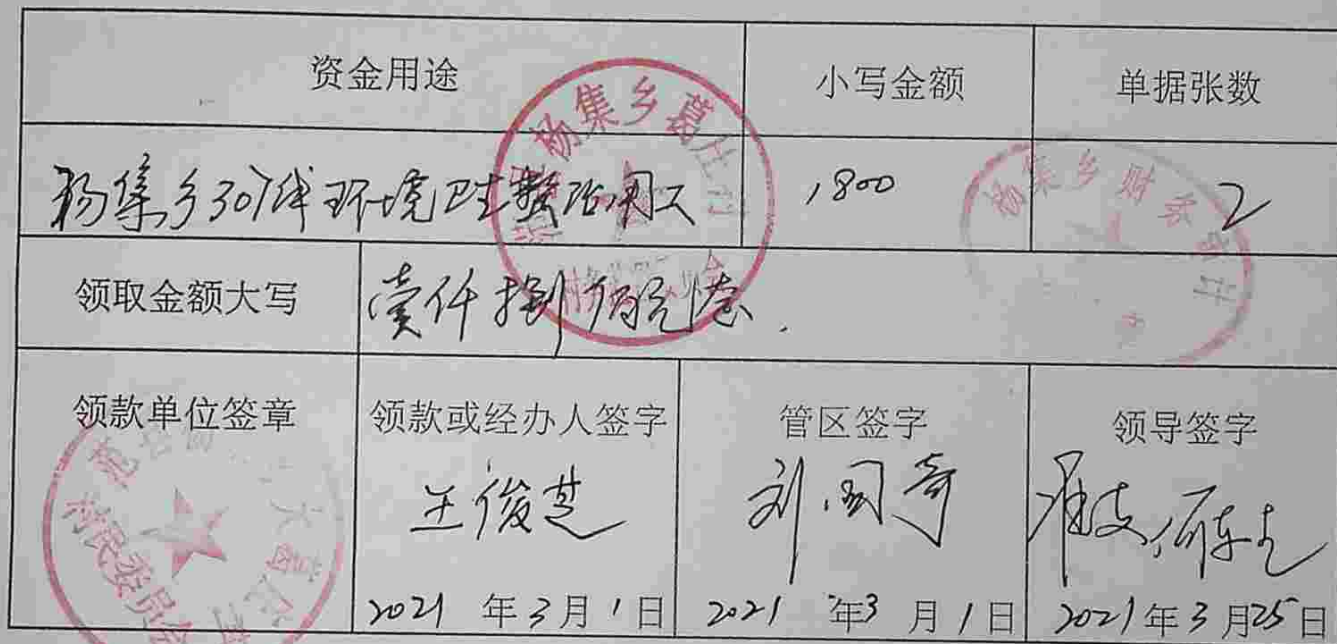 资金用途 小写金额 单据张数
杨集乡307线环境卫生整治用工 1800 2
领取金额大写 壹仟捌佰元整.
领款单位签章 领款或经办人签字 管区签字 领导签字
王俊芝 刘国奇 准支
2021年3月1日 2021年3月1日 2021年3月25日
杨集乡葛庄村
杨集乡财务审计
村民委员会